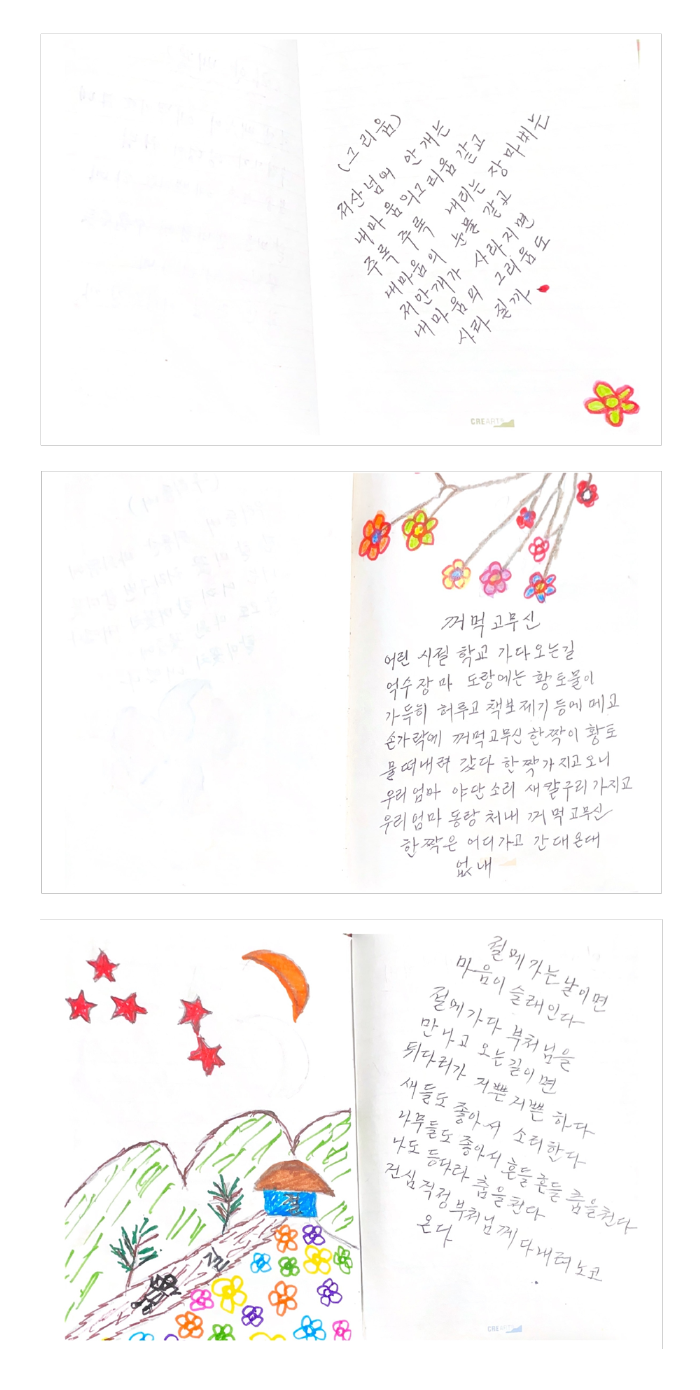 (그리움)
저산넘어 안개는
내마음의그리움같고
주룩 주룩 내리는 장마비는
내마음의 눈물 같고
저안개가 사라지면
내마음의 그리움도
사라 질까
CREARTE
꺼먹고무신
어린 시절 학교 가다오는길
억수장마 도랑에는 황토물이
가득히 허루고 책보제기 등에메고
손가락에 꺼먹고무신 한짝이 황토
물떠내려 갔다 한짝가지고오니
우리엄마 야단소리 새칼구리가지고
우리엄마 동랑처내 꺼먹고무신
한짝은 어디가고 간대온대
없내
절에가는날이면
마음이 슬래인다
절에가다 부처님을
만나고 오는길이면
뒤다리가 저쁜저쁜 하다
새들도 좋아서 소리한다
나무들도 좋아서 흔들흔들 춤을춘다
나도 등다라 춤을춘다
건심적정부처님께다내려노고
온다
절
CREARTE